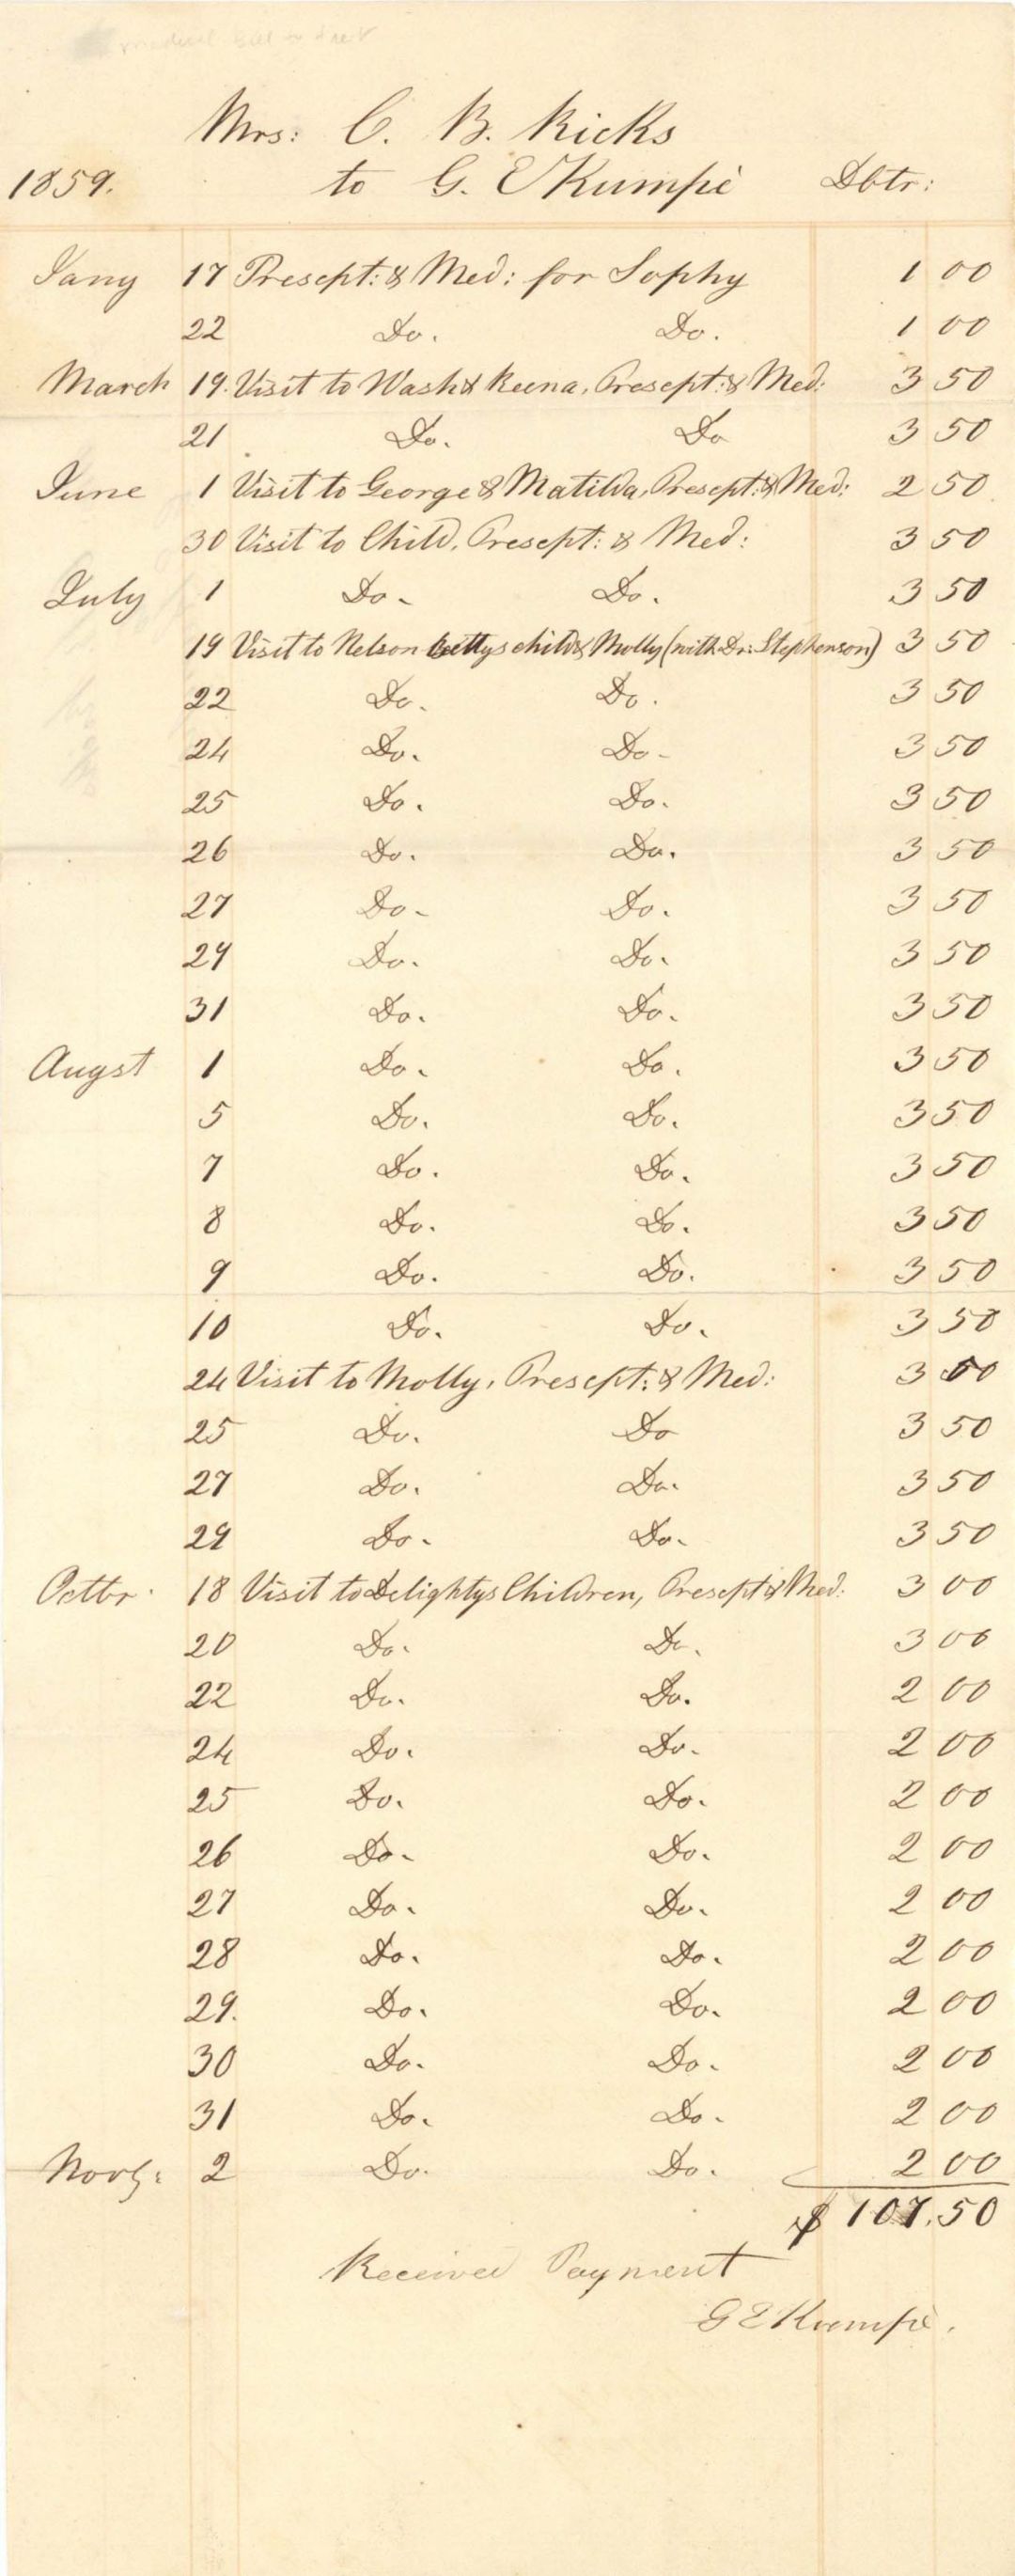 Mrs: C. B. Ricks
1859. to G. E Kumpé Dbtr:
Jany 17 Presept: & Med: for Sophy 1 00
22 Do. Do. 1 00
March 19. Visit to Wash & Keena, Presept: & Med: 3 50
21 Do. Do 3 50
June 1 Visit to George & Matilda, Presept: & Med: 2 50
30 Visit to Child, Presept: & Med: 3 50
July 1 Do - Do. 3 50
19 Visit to Nelson Bettys child & Molly (with Dr: Stephenson) 3 50
22 Do. Do. 3 50
24 Do. Do - 3 50
25 Do. Do. 3 50
26 Do. Do. 3 50
27 Do - Do. 3 50
29 Do. Do. 3 50
31 Do. Do. 3 50
Augst 1 Do. Do. 3 50
5 Do. Do. 3 50
7 Do. Do. 3 50
8 Do. Do. 3 50
9 Do. Do. 3 50
10 Do. Do. 3 50
24 Visit to Molly, Presept: & Med: 3 50
25 Do. Do 3 50
27 Do. Do. 3 50
29 Do - Do. 3 50
Octbr. 18 Visit to Delightys Children, Presept: & Med. 3 00
20 Do. Do. 3 00
22 Do. Do. 2 00
24 Do. Do. 2 00
25 Do. Do. 2 00
26 Do - Do. 2 00
27 Do. Do. 2 00
28 Do. Do. 2 00
29. Do. Do. 2 00
30 Do. Do. 2 00
31 Do. Do. 2 00
Novb: 2 Do. Do. 2 00
$ 107.50
Received Payment
G E Kumpé.